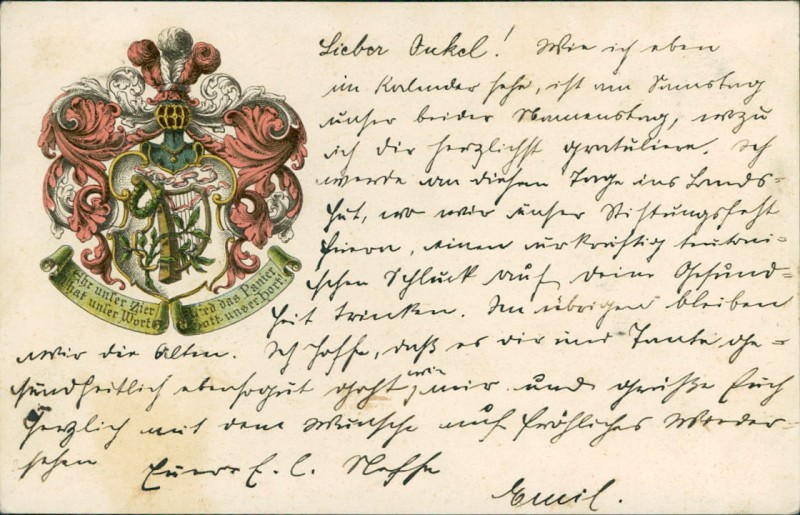 Lieber Onkel! Wie ich eben
im Kalender sehe, ist am Samstag
unser beider Namenstag, wozu
ich Dir herzlichst gratuliere. Ich
werde an diesem Tage ins Lands-
hut, wo wir unser Stiftungsfest
feiern, einen urkräftig teutoni-
schen Schluck auf deine Gesund-
heit trinken. Im übrigen bleiben
wir die Alten. Ich hoffe, daß es dir und Tante ge-
sundheitlich ebensogut geht, wie mir und grüße Euch
herzlich mit dem Wunsche auf fröhliches Wieder-
sehen Euer Neffe
Emil.
Ehr unser Zier
That unser Wort
Lied das Panier
Gott unser Hort!